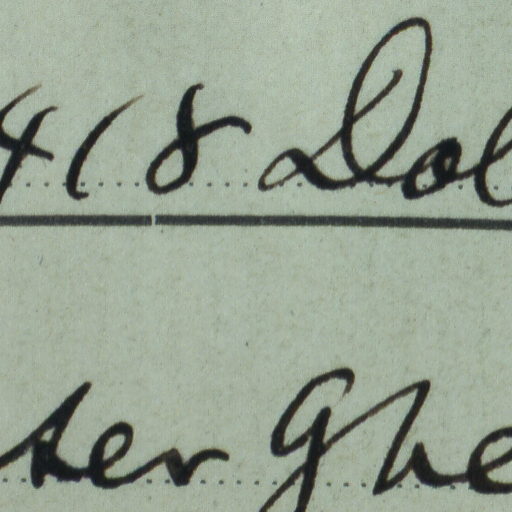 418 Dol
ter Ghe